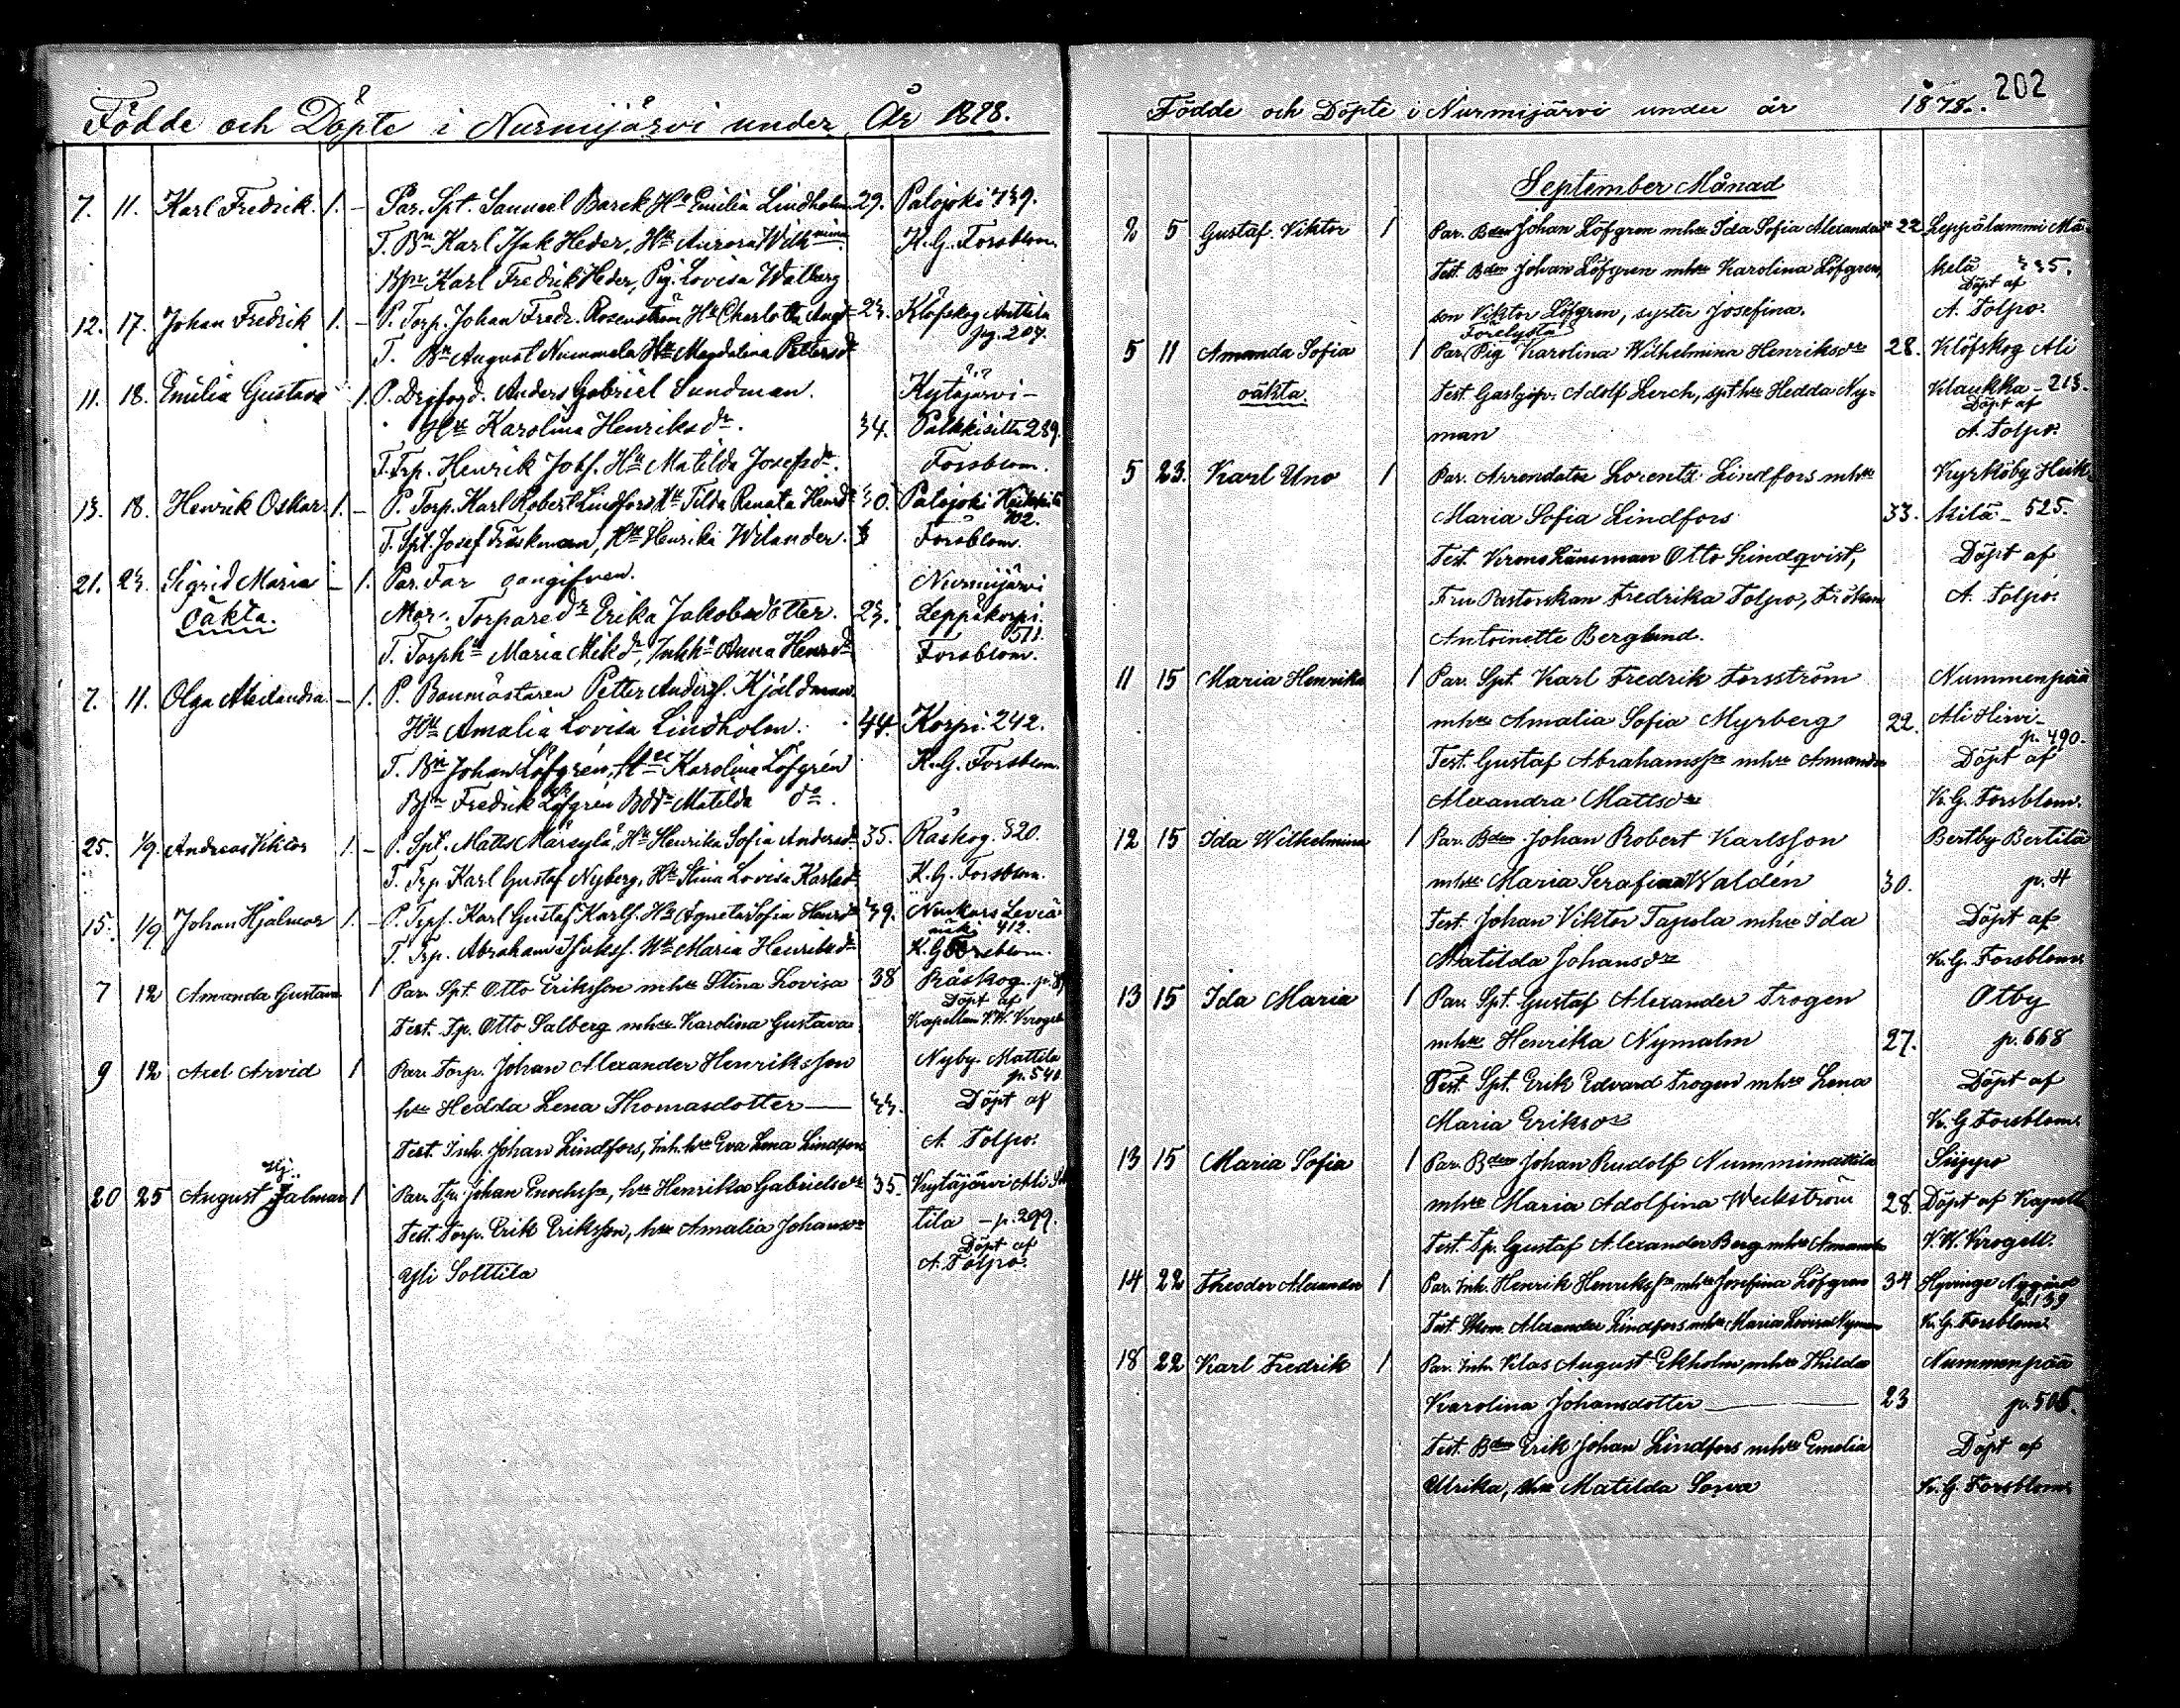 Födde och Döpte i Nurmijärvi under År 1878.
7. 11. Karl Fredrik. 1. - Par. Spt. Samuel Barck Hu Emilia Lindholm 29. Palojoki 739.
T. Bn Karl Isak Heder, Hu Aurora Wilhmina K. G. Forsblom.
Bpr Karl Fredrik Heder, Pig. Lovisa Walberg
12. 17. Johan Fredrik 1. - P. Torp. Johan Fredr. Rosenström Hu Charlotta Aug 23. Klöfskog Anttila
pg. 207.
T. Bn August Nummela Hu Magdalena Pettersdr
11. 18. Emilia Gustava 1. P. Drgfogd. Anders Gabriel Sundman. Kytäjärvi -
Hu Karolina Henriksdr. 34. Palkkisilta 289.
T. Trp. Henrik Johs. Hu Matilda Josefsdr. Forsblom.
13. 18. Henrik Oskar. 1. - P. Torp. Karl Robert Lindfors Hu Tilda Renata Henrdr 30. Palojoki Heikkilä
702.
T. Spt. Josef Fräskman, Hu Henrika Wilander. Forsblom.
21. 23. Sigrid Maria - 1. Par. Far oangifven. Nurmijärvi
oäkta. Mor: Torparedr Erika Jakobsdotter. 23. Leppäkorpi.
511
T. Torphu Maria Mikdr, Inhhu Anna Henrsdr Forsblom.
7. 11. Olga Alexandra. - 1. P. Banmästaren Petter Anders. Kjäldman
Hu Amalia Lovisa Lindholm. 44. Korpi. 242.
T. Bn Johan Löfgrén, Hu Karolina Löfgrén K. G. Forsblom.
Bsn Fredrik Löfgrén Bddr Matilda do.
25. 1/9. Andreas Viktor 1. - P. Spt. Matts Märsylä, Hu Henrika Sofia Andersdr. 35. Råskog. 520.
T. Trp Karl Gustaf Nyberg, Hu Stina Lovisa Karlsdr K. G. Forsblom.
15. 1/9 Johan Hjalmar 1. - P. Trps. Karl Gustaf Karls. Hu Agneta Sofia Henrdr 39. Nuckars Leviä
mäki 412.
T. Trp. Abraham Isakss. Hu Maria Henriksdr K. G Forsblom.
7 12 Amanda Gustava 1 Par. Spt. Otto Eriksson mhu Stina Lovisa 38 Råskog p. 8
Döpt af
Test. Tp. Otto Salberg mhu Karolina Gustava Kapellan V. W. Krogell
9 12 Axel Arvid 1 Par. Torp. Johan Alexander Henriksson Nyby. Mattila
p. 540
hu Hedda Lena Thomasdotter 33. Döpt af
Test. Inh. Johan Lindfors, Inh. hu Eva Lena Lindfors A. Tolpo.
Hj.
20 25 August Jalmar 1 Par. Tp. Johan Enochsson, hu Henrika Gabrielsdr 35. Kytäjärvi Ali Sol
Test. Torp. Erik Eriksson, hu Amalia Johansdr tila - p. 299.
Döpt af
Yli Solttila A. Tolpo.
202
Födde och Döpte i Nurmijärvi under år 1878.
September Månad
2 5 Gustaf Viktor 1 Par. Bden Johan Löfgren mhu Ida Sofia Alexandersdr 22 Leppälammi Mä-
Test. Bden Johan Löfgren mhu Karolina Löfgren, kelä 335.
Döpt af
son Viktor Löfgren, syster Josefina. A. Tolpo.
Förelysta
5 11 Amanda Sofia 1 Par. Pig Karolina Wilhelmina Henriksdr 28. Klöfskog Ali
oäkta. Test. Gastgifv. Adolf Lerch, spt hu Hedda Ny- Klaukka - 213.
Döpt af
man A. Tolpo.
5 23. Karl Uno 1 Par. Arrendator Lorentz Lindfors mhu Kyrkoby Heik-
Maria Sofia Lindfors 33. kilä - 525.
Test. Kronolänsman Otto Lindqvist, Döpt af
Fru Pastorskan Fredrika Tolpo, Fröken A. Tolpo.
Antoinette Berglund.
11 15 Maria Henrika 1 Par. Spt. Karl Fredrik Forsström Nummenpää
mhu Amalia Sofia Myrberg 22. Ali Hirvi-
p. 490.
Test. Gustaf Abrahamsson mhu Amanda Döpt af
Alexandra Mattsdr K. G. Forsblom.
12 15 Ida Wilhelmina 1 Par. Bden Johan Robert Karlsson Bertby Bertilä
mhu Maria Serafina Waldén 30. p. 4
Test. Johan Viktor Tapola mhu Ida Döpt af
Matilda Johansdr K. G. Forsblom
13 15 Ida Maria 1 Par. Spt. Gustaf Alexander Trogen Otby
mhu Henrika Nymalm 27. p. 668
Test. Spt. Erik Edvard Trogen mhu Lena Döpt af
Maria Eriksdr K. G Forsblom
13 15 Maria Sofia 1 Par. Bden Johan Rudolf Nummimattila Siippo
mhu Maria Adolfina Weckström 28. Döpt af Kapell
Test. Tp. Gustaf Alexander Berg mhu Amanda V. W. Krogell.
14 22 Theodor Alexander 1 Par. Inh. Henrik Henriksson mhu Josefina Löfgren 34 Hyvinge Nygård
p. 139
Test. Alexander Lindfors mhu Maria Lovisa Nyman K. G. Forsblom.
18 22 Karl Fredrik 1 Par. Inh. Klas August Ekholm mhu Hilda Nummenpää
Karolina Johansdotter 23 p. 505.
Test. Bden Erik Johan Lindfors mhu Emelia Döpt af
Ulrika, Matilda Sorva K. G. Forsblom